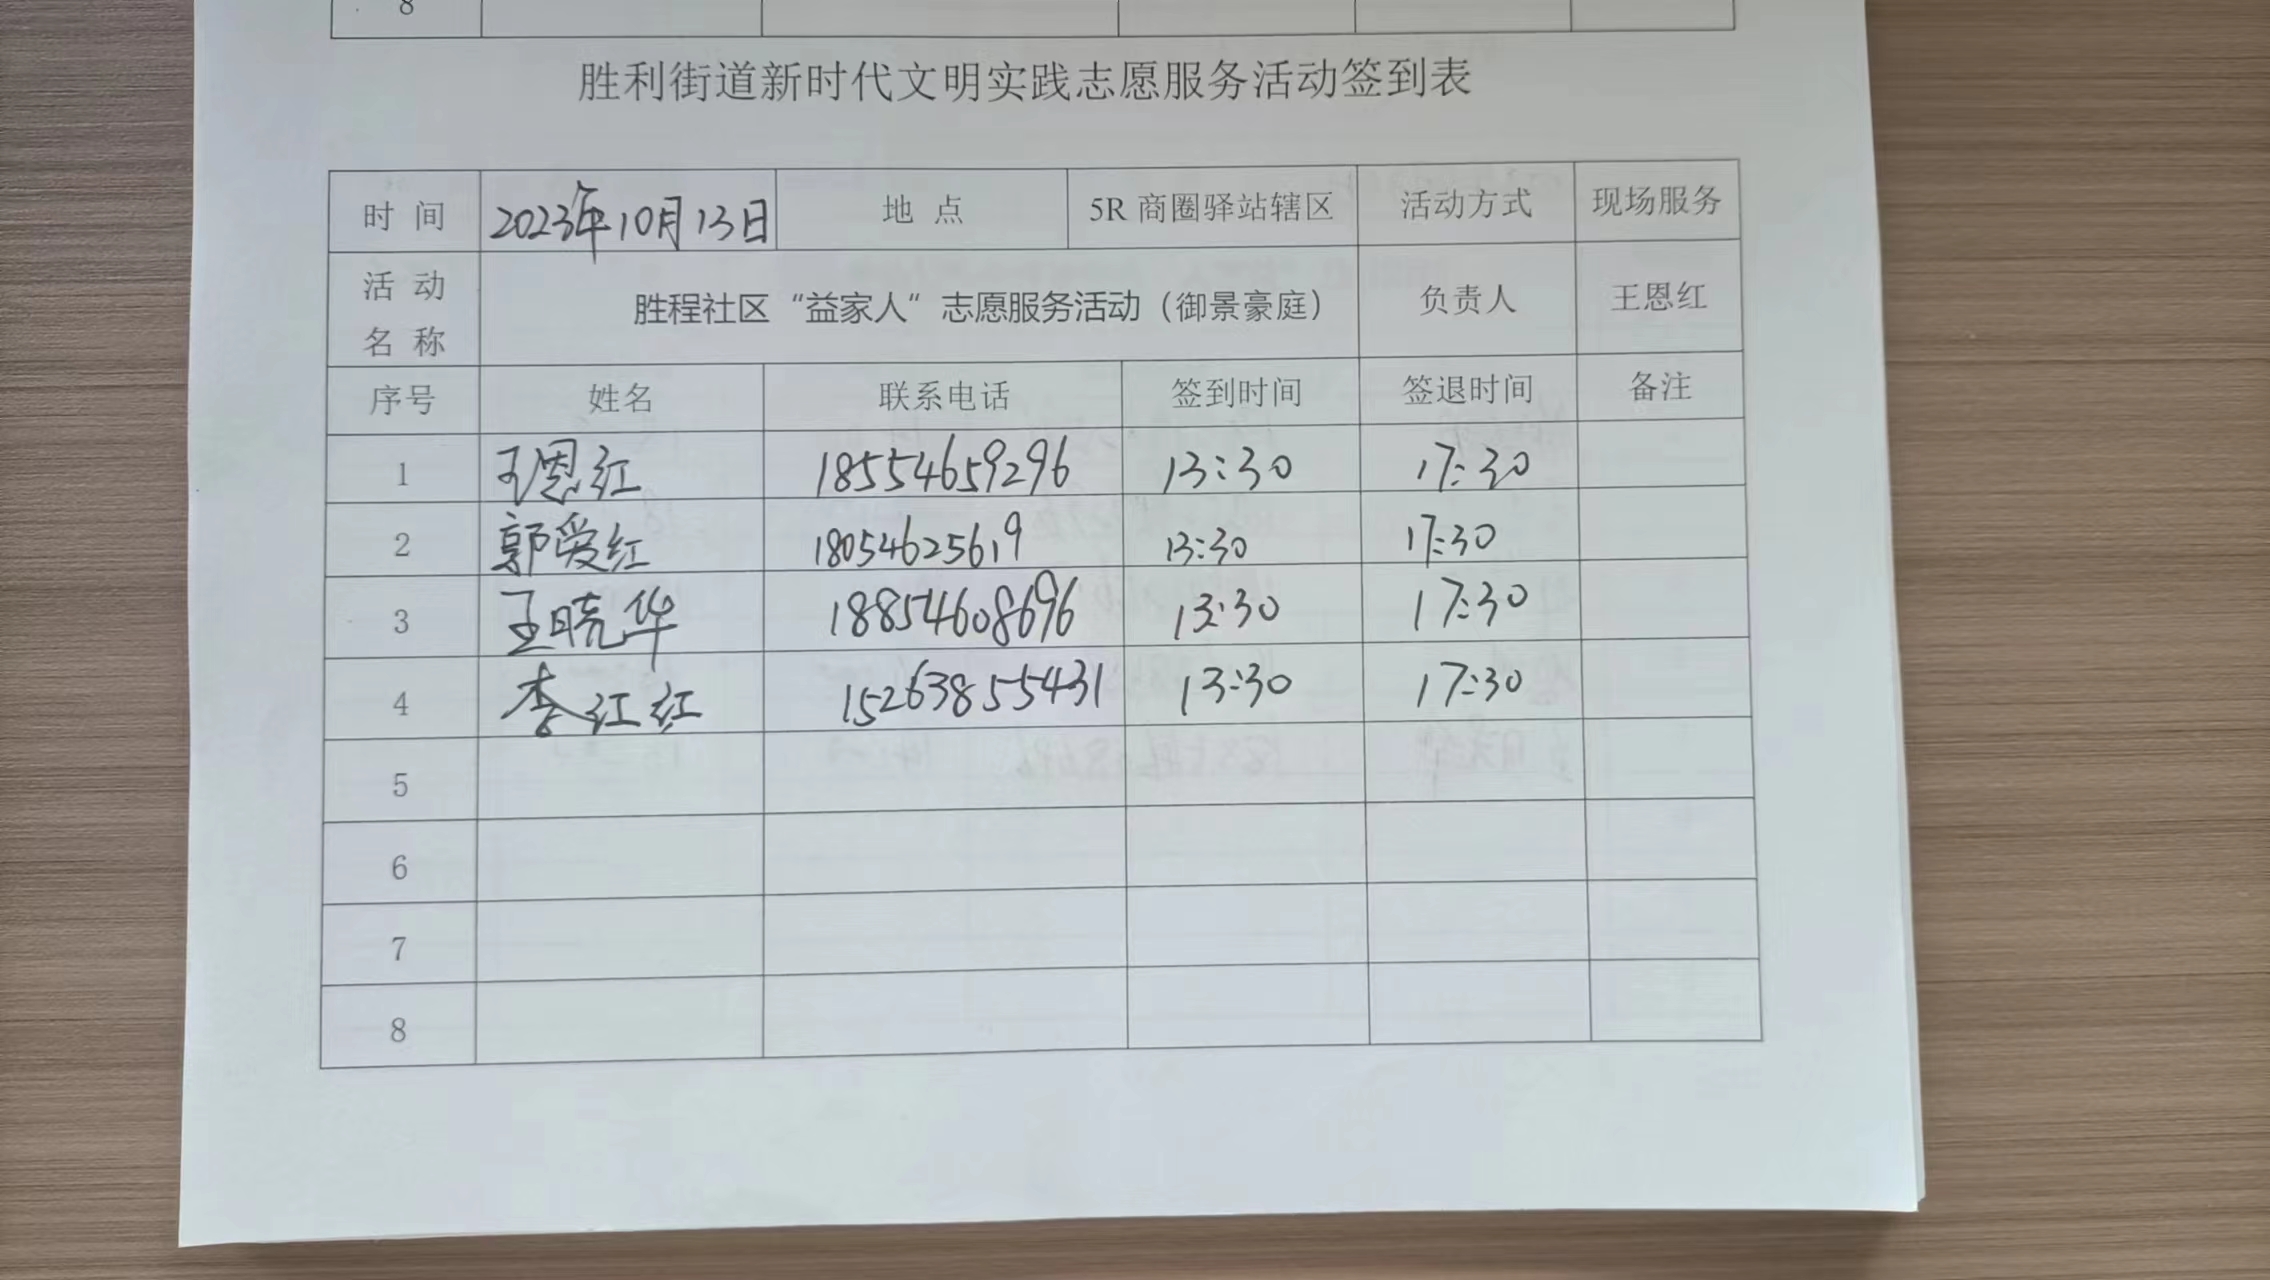 8
胜利街道新时代文明实践志愿服务活动签到表
时 间 2023年10月13日 地 点 5R 商圈驿站辖区 活动方式 现场服务
活 动
名 称 胜程社区“益家人”志愿服务活动（御景豪庭） 负责人 王恩红
序号 姓名 联系电话 签到时间 签退时间 备注
1 王恩红 18554659296 13:30 17:30
2 郭爱红 18054625619 13:30 17:30
3 王晓华 18854608696 13:30 17:30
4 李江红 15263855431 13:30 17:30
5
6
7
8